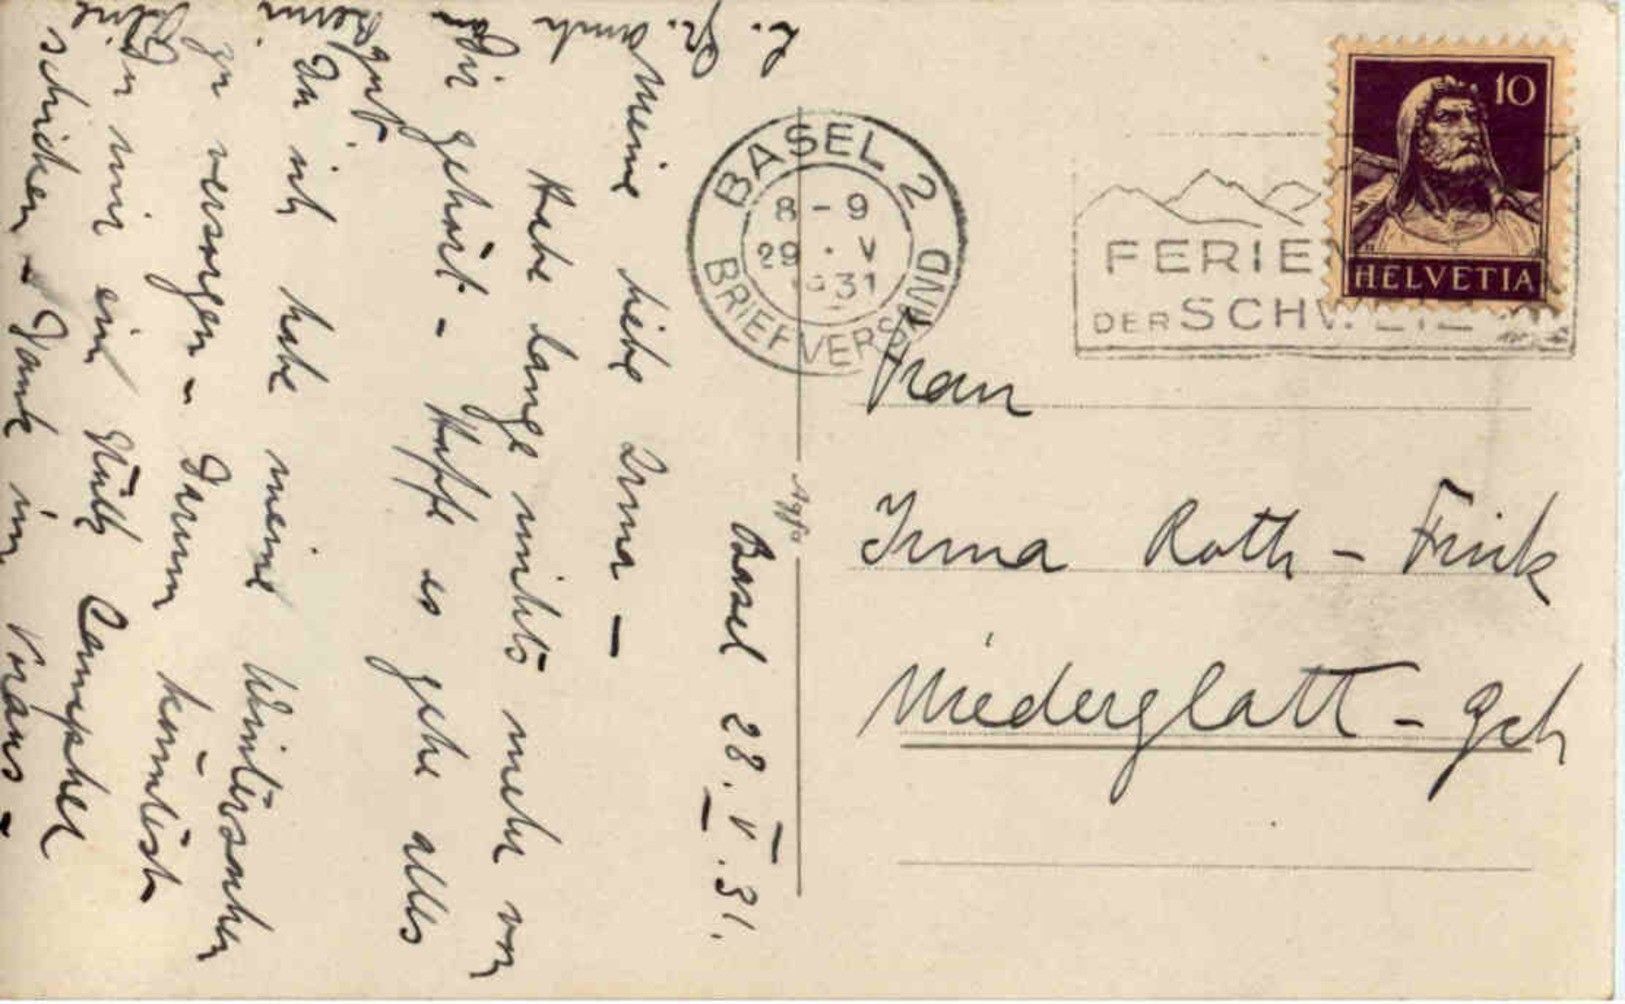 Basel 28. V. 31.
Meine liebe Irma –
Habe lange nichts mehr von
Dir gehört – Hoffe es gehe alles
gut.
Du ich habe meine Wintersachen
zu versorgen – Darum könntest
Du mir ein Stück Campher
schicken – Danke im Voraus –
BASEL 2
8 – 9
29 . V
31
BRIEFVERSAND
FERIEN
DER SCHWEIZ
10
HELVETIA
Agfa
Frau
Irma Roth – Frick
Niederglatt – Zch